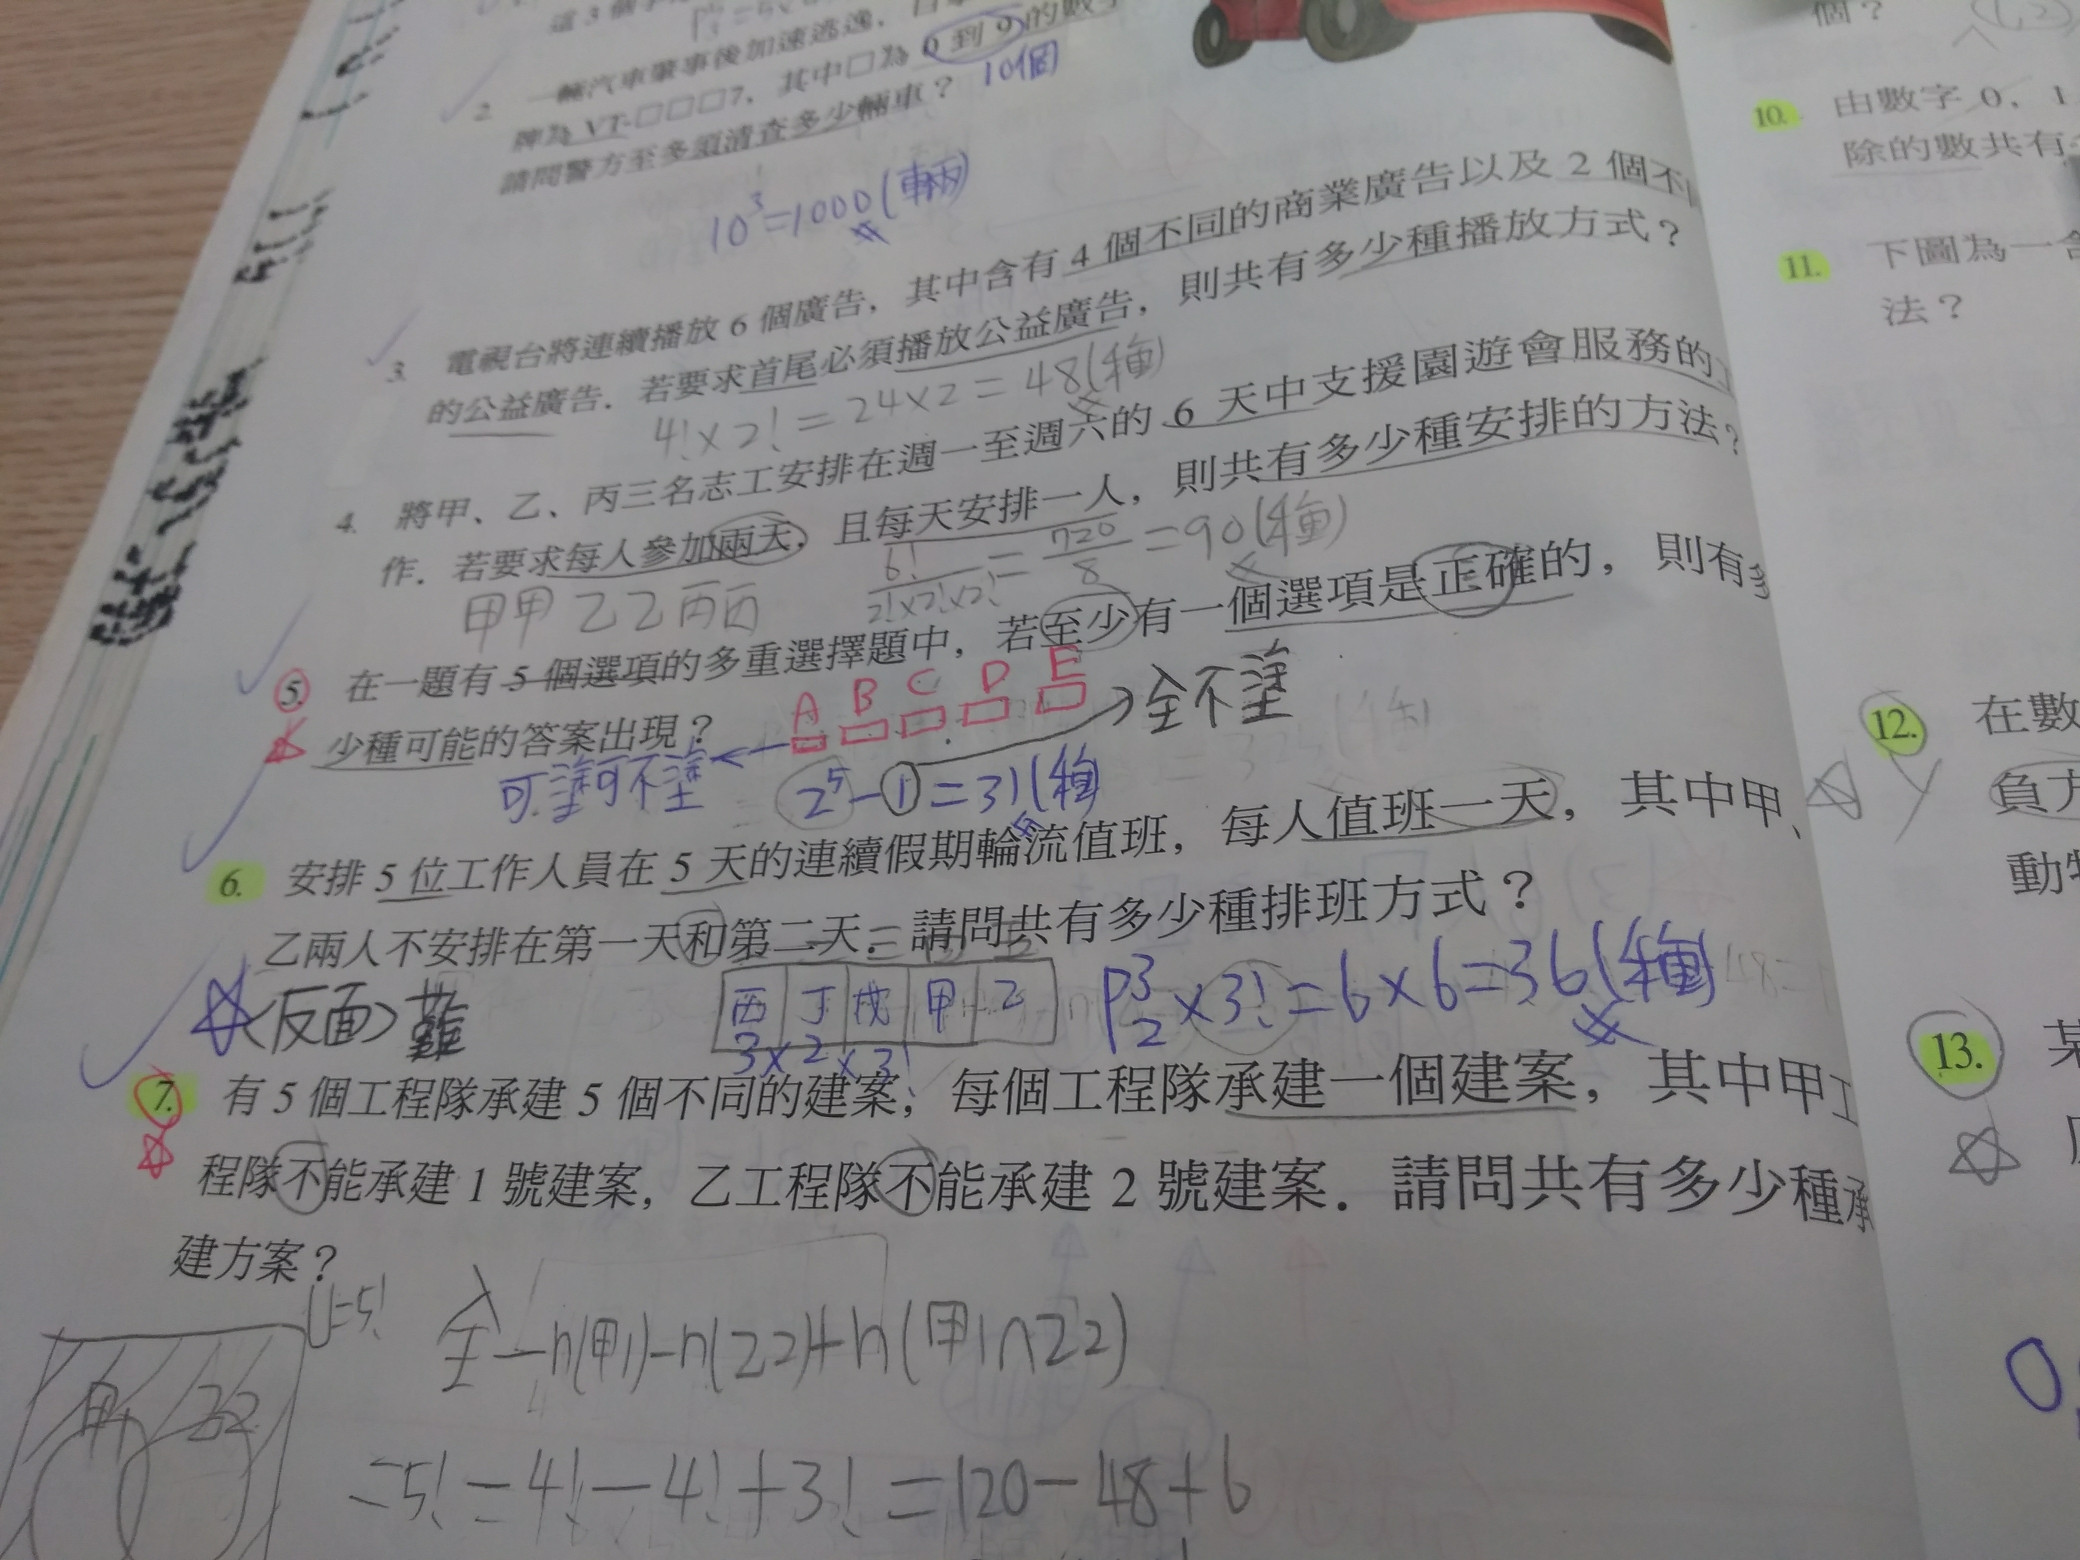 這3個字
2. 一輛汽車肇事後加速逃逸,
牌為 VT-□□□7, 其中□為 0 到 9 的數字
10個
請問警方至多須清查多少輛車?
10³=1000(輛)
3. 電視台將連續播放 6 個廣告, 其中含有 4 個不同的商業廣告以及 2 個不
的公益廣告. 若要求首尾必須播放公益廣告, 則共有多少種播放方式?
4!×2!=24×2=48(種)
4. 將甲、乙、丙三名志工安排在週一至週六的 6 天中支援園遊會服務的
作. 若要求每人參加兩天, 且每天安排一人, 則共有多少種安排的方法?
甲甲乙乙丙丙
6!/2!×2!×2! = 720/8 = 90(種)
5. 在一題有 5 個選項的多重選擇題中, 若至少有一個選項是正確的, 則有多
少種可能的答案出現?
A B C D E
全不塗
可塗可不塗
2⁵-1=31(種)
6. 安排 5 位工作人員在 5 天的連續假期輪流值班, 每人值班一天, 其中甲、
乙兩人不安排在第一天和第二天. 請問共有多少種排班方式?
(反面)難
丙 丁 戊 甲 乙
3×2×3!
P³₂×3!=6×6=36(種)
7. 有 5 個工程隊承建 5 個不同的建案, 每個工程隊承建一個建案, 其中甲工
程隊不能承建 1 號建案, 乙工程隊不能承建 2 號建案. 請問共有多少種承
建方案?
U=5!
全-n(甲1)-n(乙2)+n(甲1∩乙2)
甲1 乙2
=5!=4!-4!+3!=120-48+6
個?
10. 由數字 0, 1
除的數共有
11. 下圖為一
法?
12. 在數
負方
動物
13. 某